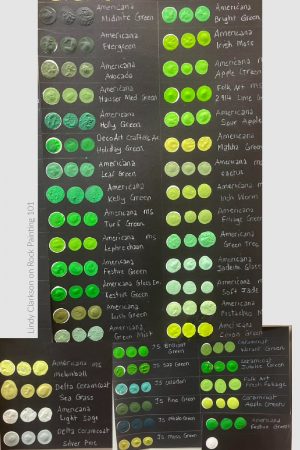 Americana
Midnite Green
Americana
Evergreen
Americana
Avocado
Americana
Hauser Med Green
Americana
Holly Green
DecoArt Crafters Acr.
Holiday Green
Americana
Leaf Green
Americana
Kelly Green
Americana ms
Turf Green
Americana ms
Leprechaun
Americana
Festive Green
Americana Glass En.
Kestrel Green
Americana
Lush Green
Americana
Green Mist
Americana
Bright Green
Americana
Irish Moss
Americana ms
Apple Green
Folk Art ms
2914 Lime
Americana
Sour Apple
Americana
Matcha Green
Americana
cactus
Americana ms
Inch Worm
Americana
Foliage Green
Americana
Green Tree
Americana
Jadeite Glass
Americana
Soft Jade
Americana
Pistachio
Americana
Citron Green
Americana ms
Melonball
Delta Ceramcoat
Sea Grass
Americana
Light Sage
Delta Ceramcoat
Silver Pine
JS Brilliant
Green
JS Sea Green
JS
JS Pine Green
JS
JS Moss Green
Ceramcoat
Green
Ceramcoat
Jubilee Green
Folk Art
Fresh Foliage
Ceramcoat
Apple Green
Americana
Festive Green
Lindy Clarkson on Rock Painting 101